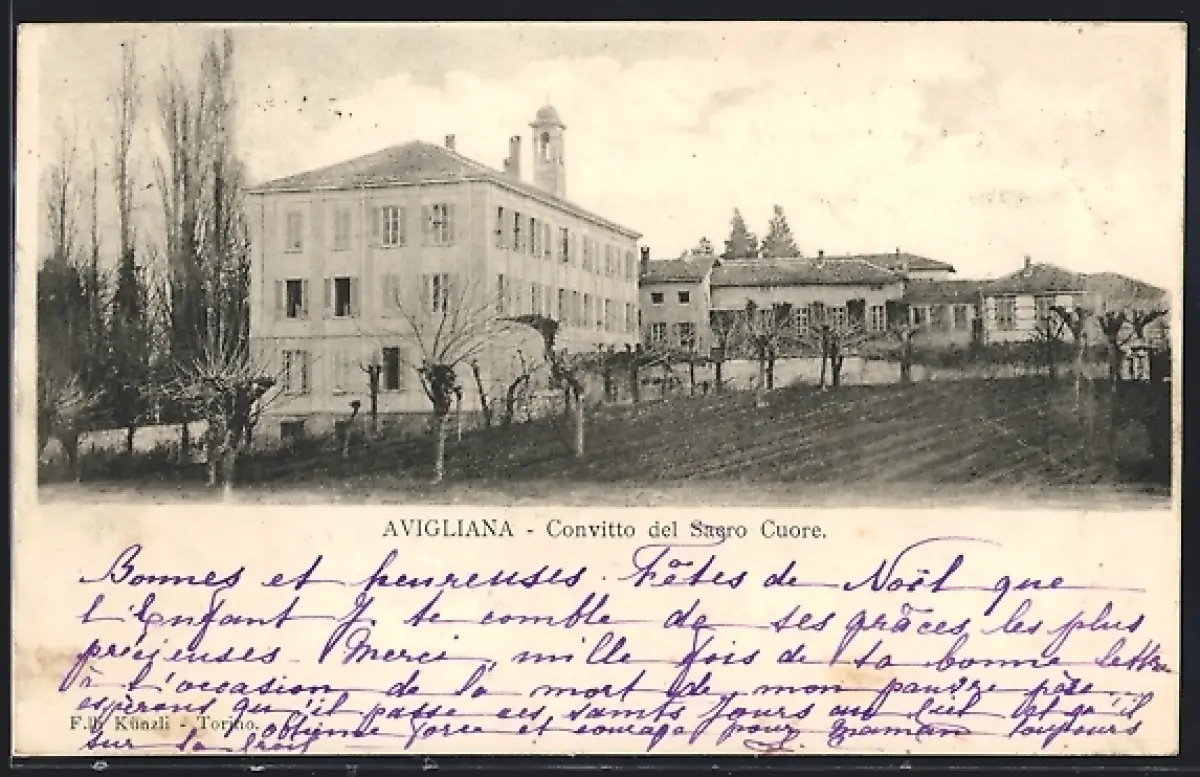 AVIGLIANA - Convitto del Sacro Cuore.
Bonnes et heureuses Fêtes de Noël que
l'Enfant J. te comble de ses grâces les plus
précieuses. Merci mille fois de ta bonne lettre
à l'occasion de la mort de mon pauvre père
espérons qu'il passe ces saints jours au ciel et qu'il
F.lli Künzli - Torino. obtienne force et courage pour maman toujours
sur la croix